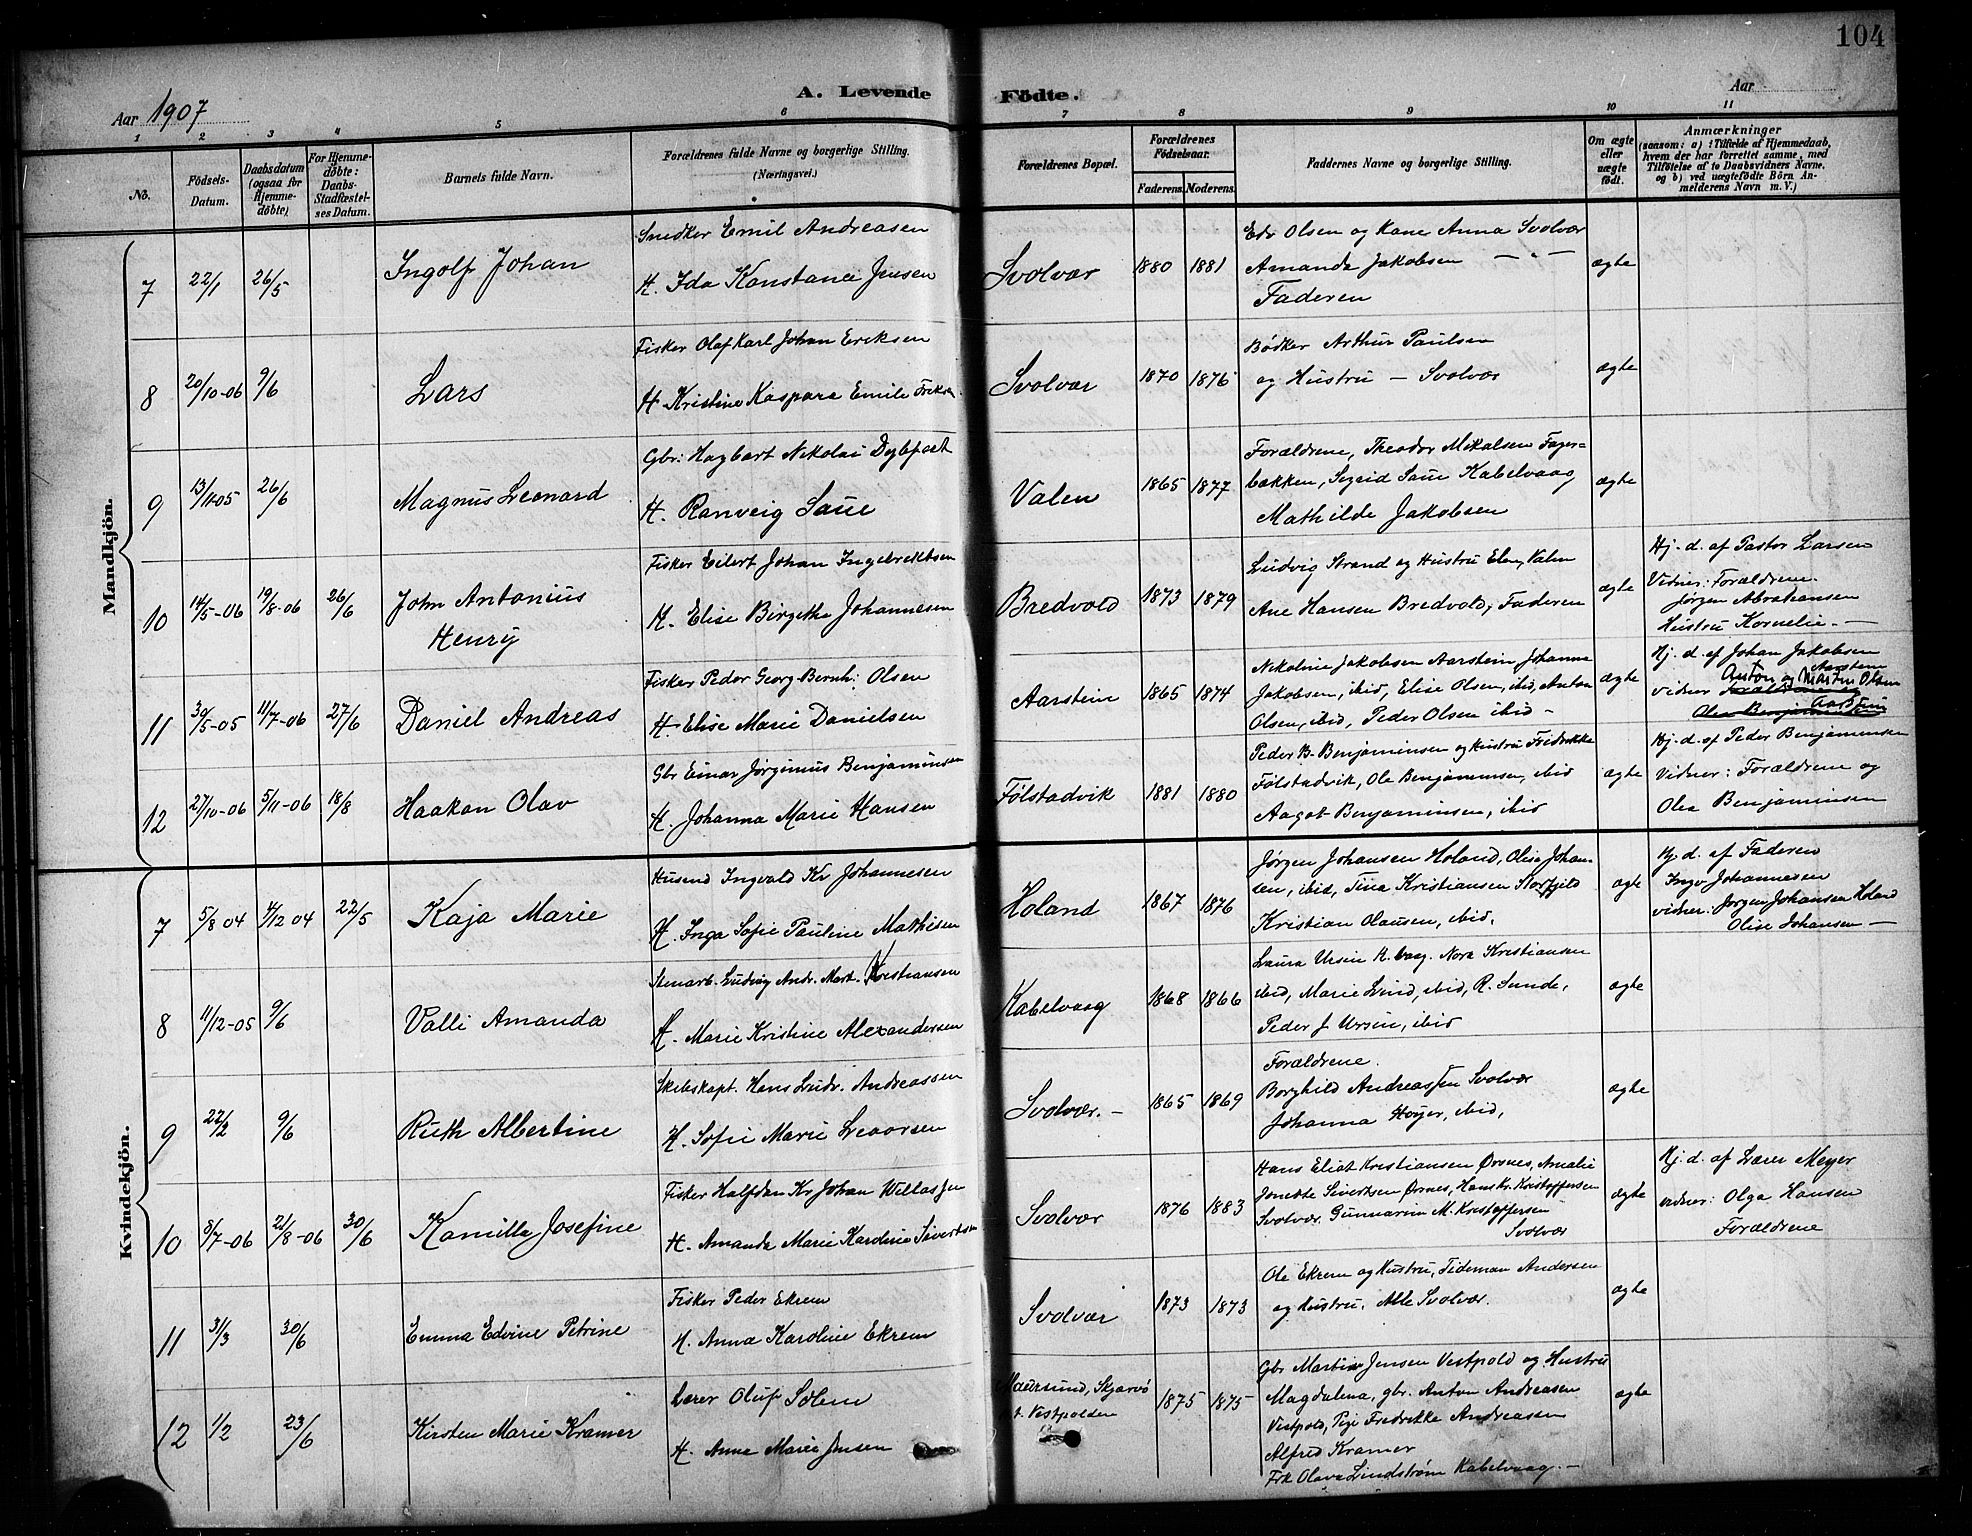 104
A. Levende Födte.
Aar 1907
Aar
1 2 3 4 5 6 7 8 9 10 11
No.
Födsels-Datum.
Daabsdatum (ogsaa for Hjemmedöbte)
For Hjemmedöbte: Daabs-Stadfæstelses Datum.
Barnets fulde Navn.
Forældrenes fulde Navne og borgerlige Stilling. (Næringsvei.)
Forældrenes Bopæl.
Forældrenes Födselsaar.
Faderens. Moderens.
Faddernes Navne og borgerlige Stilling.
Om ægte eller uægte födt.
Anmærkninger
(saasom: a) i Tilfælde af Hjemmedaab,
hvem der har forrettet samme, med
Tilföielse af to Daabsvidners Navne,
og b) ved uægtefödte Börn Anmelderens Navn m. V.)
Mandkjön.
7 22/1 26/5 Ingolf Johan
Snedker Emil Andreasen
H. Ida Konstance Jensen
Svolvær 1880 1881
Edv Olsen og Kane Anna Svolvær
Amanda Jakobsen — " —
Faderen
ægte
8 20/10-06 9/6 Lars
Fisker Olaf Karl Johan Eriksen
H. Kristine Kaspara Emilie Eriksen
Svolvær 1870 1876
Bødker Arthur Paulsen
og Hustru — Svolvær
ægte
9 13/11-05 26/6 Magnus Leonard
Gbr: Hagbart Nikolai
H. Ranveig Saue
Valen 1865 1877
Forældrene, Theodor Mikalsen Fager-
bakken, Sigrid Saue Kabelvaag
Mathilde Jakobsen
ægte
10 14/5-06 19/8-06 26/6 John Antonius
Henry
Fisker Eilert Johan Ingebrektsen
H. Elise Birgitte Johannesen
Bredvold 1873 1879
Ludvig Strand og Hustru Elen, Valen
Ane Hansen Bredvold, Faderen
ægte
Hj. d. af Pastor Larsen
Vidner: Forældrene.
Jørgen Abrahamsen
Hustru Kornelie. —
11 30/5-05 11/7-06 27/6 Daniel Andreas
Fisker Peder Georg Bernh: Olsen
H. Elise Marie Danielsen
Aarstein 1865 1874
Nikoline Jakobsen Aarstein Johanna
Jakobsen, ibid, Elise Olsen, ibid, Anton
Olsen, ibid, Peder Olsen ibid-
ægte
Hj. d. af Johan Jakobsen
Aarstein
vidner Anton og Martin Olsen
Forældrene og
Olea Benjaminsen Aarstein
12 27/10-06 5/11-06 18/8 Haakon Olav
Gbr Einar Jørginius Benjaminsen
H. Johanna Marie Hansen
Følstadvik 1881 1880
Peder B. Benjaminsen og Hustru Fredrikke
Følstadvik, Ole Benjaminsen, ibid
Aagot Benjaminsen, ibid
ægte
Hj. d. af Peder Benjaminsen
Vidner: Forældrene og
Olea Benjaminsen
Kvindekjön.
7 5/8 04 4/12 04 22/5 Kaja Marie
Husmd Ingvald Kr Johannesen
H. Inga Sofie Pauline Mathisen
Holand 1867 1876
Jørgen Johansen Holand, Olise Johan-
sen, ibid, Tina Kristiansen Storfjeld
Kristian Olausen, ibid.
ægte
Hj. d. af Faderen
Ingv Johannesen
vidner: Jørgen Johansen Holand
Olise Johansen —
8 11/12-05 9/6 Valli Amanda
Stenarb. Ludvig Andr. Mart. Kristiansen
H. Marie Kristine Alexandersen
Kabelvaag 1868 1866
Laura Ursin K.vaag. Nora Kristiansen
ibid, Marie Lind, ibid, R. Sunde,
Peder J. Ursin, ibid
ægte
9 22/2 9/6 Ruth Albertine
Skibskapt. Hans Ludv. Andreassen
H. Sofie Marie Leaorsen
Svolvær. — 1865 1869
Forældrene.
Borghild Andreassen Svolvær
Johanna Høyer, ibid,
ægte
10 8/7-06 21/8-06 30/6 Kamilla Josefine
Fisker Halfdan Kr Johan Willassen
H. Amanda Marie Karoline Sivertsen
Svolvær 1876 1883
Hans Eliat Kristiansen Ørsnes, Amalie
Jonette Sivertsen Ørsnes, Hans Kr. Kristoffersen
Svolvær. Gunnarine M. Kristoffersen
Svolvær
ægte
Hj. d. af Lærer Meyer
vidner: Olga Hansen
Forældrene
11 31/3 30/6 Emma Edvine Petrine
Fisker Peder Ekrem
H. Anna Karoline Ekrem
Svolvær 1873 1873
Ole Ekrem og Hustru, Tideman Andersen
og Hustru. Alle Svolvær.
ægte
12 1/2 23/6 Kirsten Marie Kramer
Lærer Oluf Solem
H. Anna Marie Jensen
Maursund, Skjærvø
p.t. Vestpolden 1875 1875
Gbr Martin Jensen Vestpold og Hustru
Magdalena, gbr. Anton Andreasen
Vestpold, Pige Fredrikke Andreassen
Alfred Kramer
Frk Olava Lindstrøm Kabelvaag. —
ægte